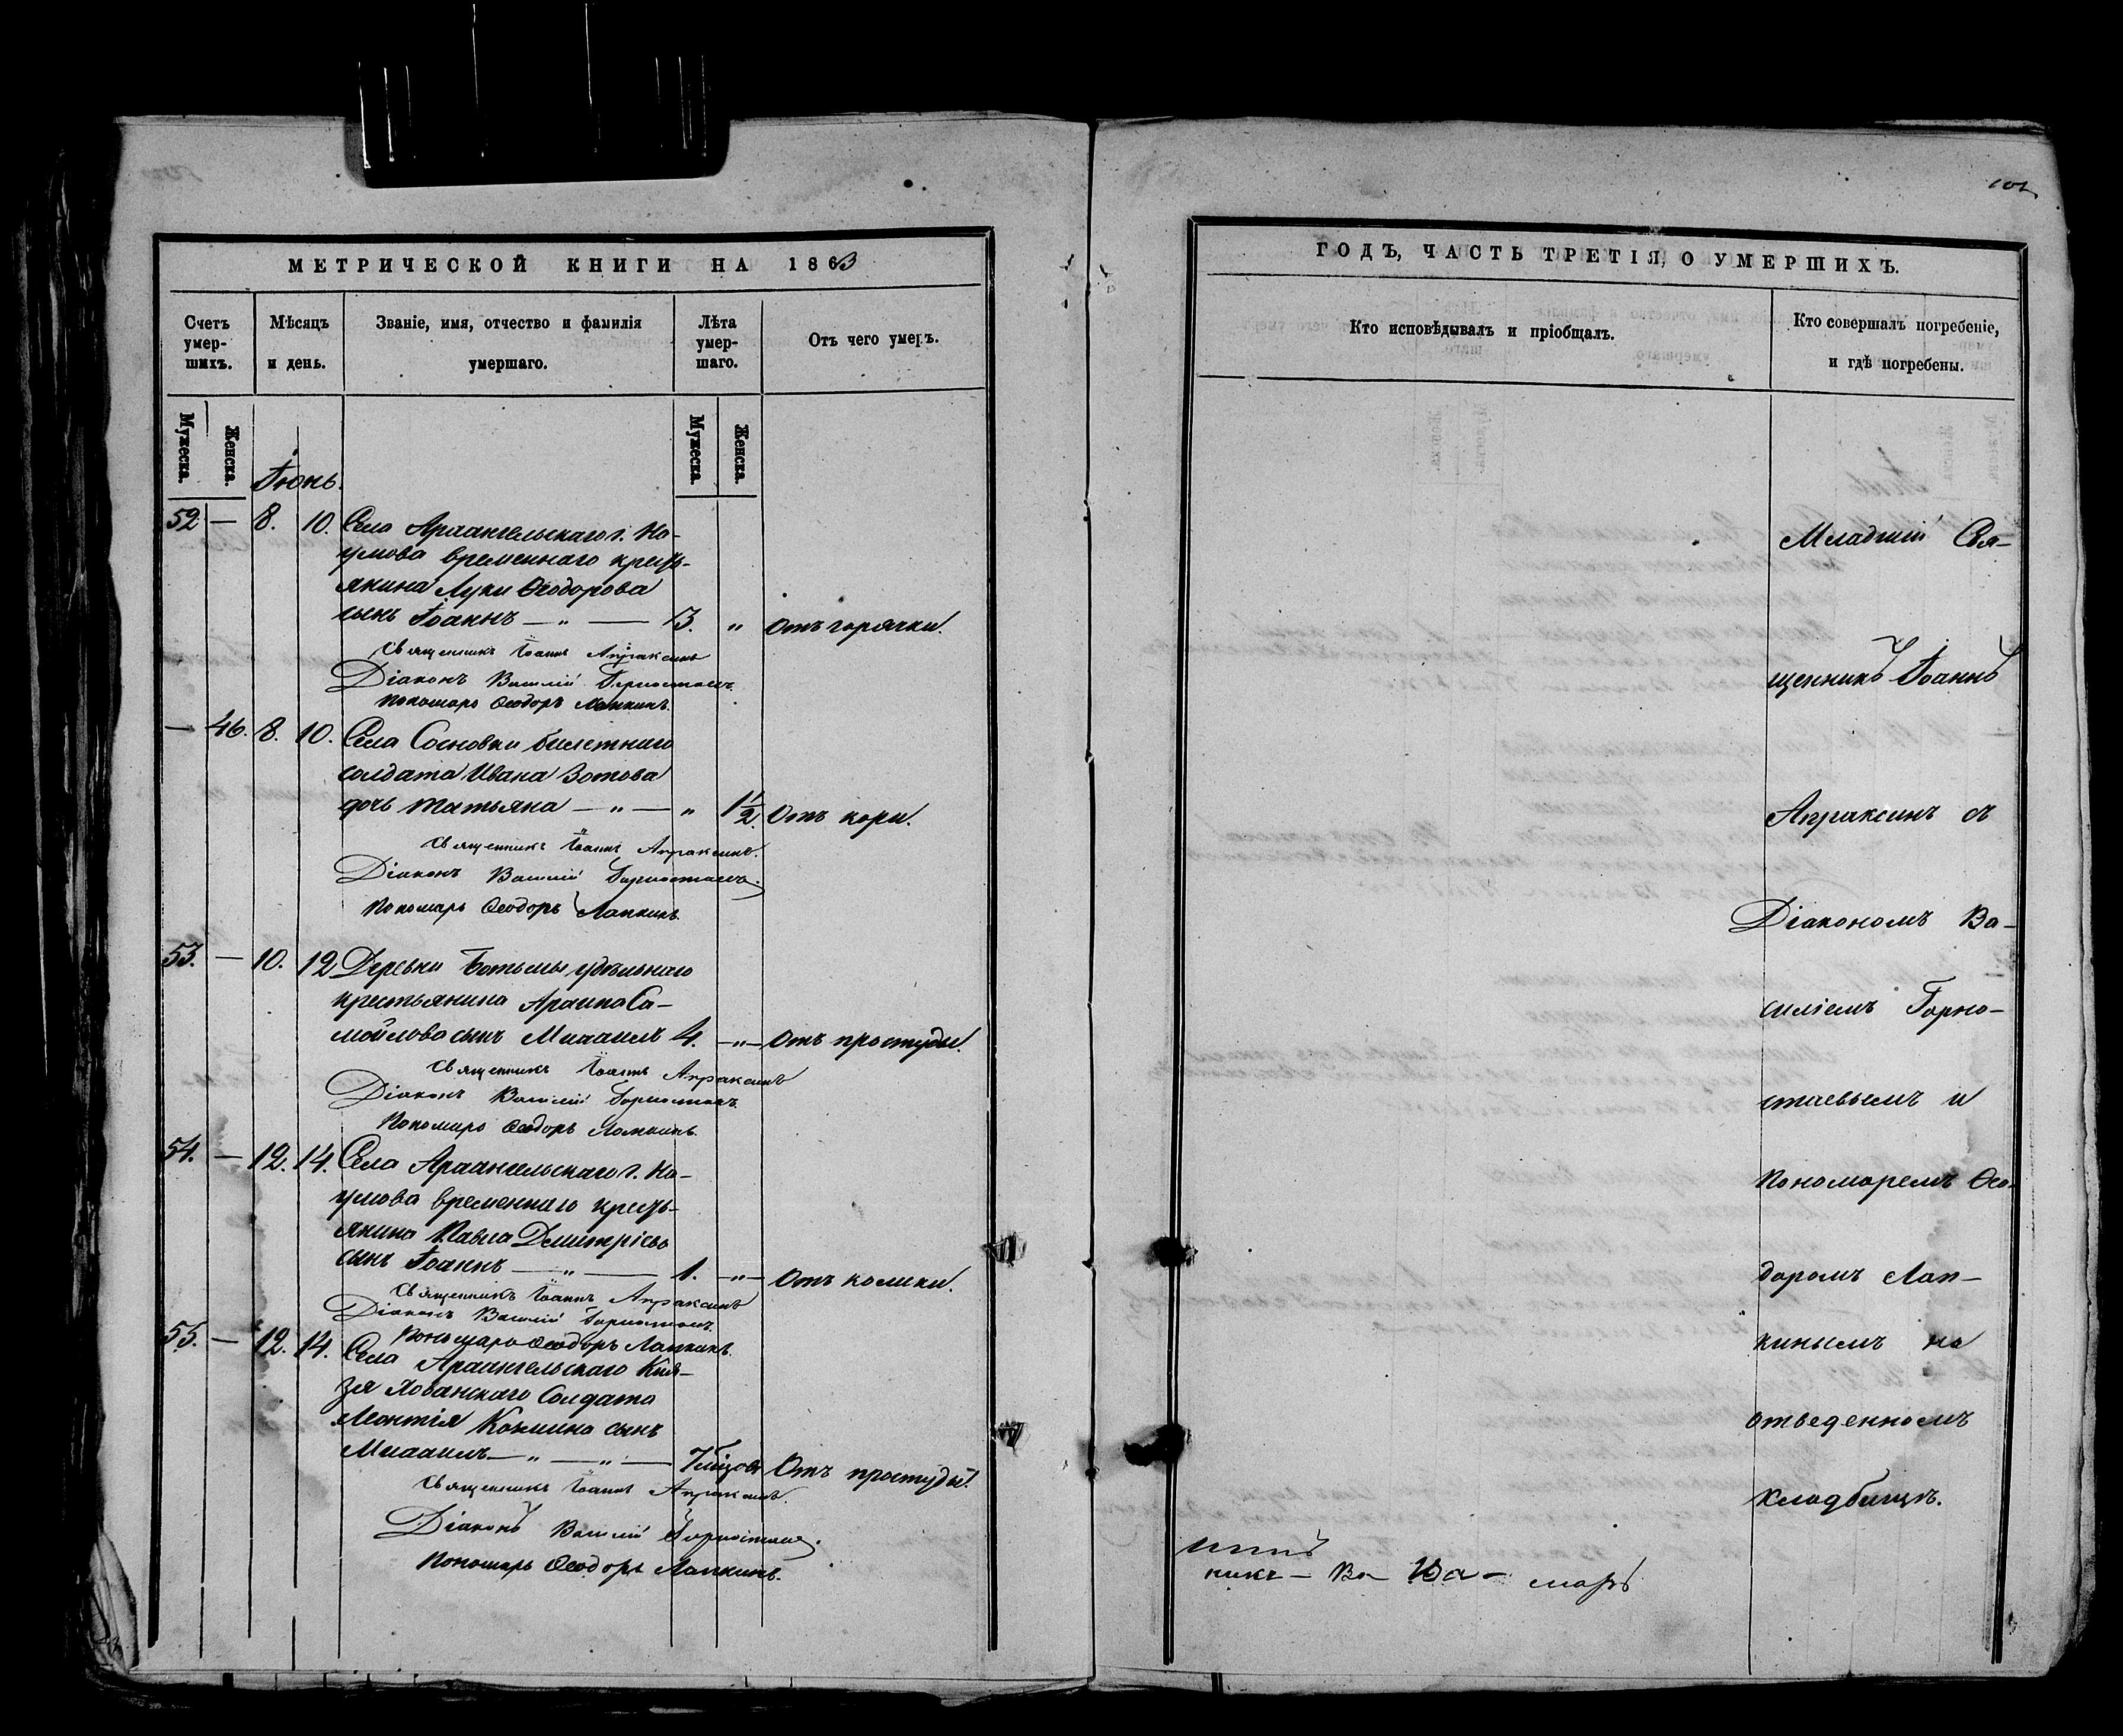 МЕТРИЧЕСКОЙ КНИГИ НА 1863
Счетъ умер-шихъ.
Мѣсяцъ и день.
Званіе, имя, отчество и фамилія умершаго.
Лѣта умер-шаго.
Отъ чего умеръ.
Мужеска.
Женска.
Мужеска.
Женска.
Іюнь.
52 — 8. 10. Села Архангельскаго г. На-
умова временнаго кресть-
янина Луки Ѳеодорова
сынъ Іоаннъ — „ — 3. „ Отъ горячки.
Священникъ Іоаннъ Апраксинъ
Діаконъ Василій Горностаевъ
Пономарь Ѳеодоръ Лапкинъ.
— 46. 8. 10. Села Сосновки билетнаго
солдата Ивана Зотова
дочь Татьяна — „ — „ 1 1/2. Отъ кори.
Священникъ Іоаннъ Апраксинъ.
Діаконъ Василій Горностаевъ.
Пономарь Ѳеодоръ Лапкинъ.
53. — 10. 12 Деревни Ботьмы удѣльнаго
крестьянина Архипа Са-
мойлова сынъ Михаилъ 4. — „ — Отъ простуды.
Священникъ Іоаннъ Апраксинъ
Діаконъ Василій Горностаевъ.
Пономарь Ѳеодоръ Лапкинъ.
54. — 12. 14. Села Архангельскаго г. На-
умова временнаго кресть-
янина Павла Димитріева
сынъ Іоаннъ — „ — 1. — „ — Отъ колики.
Священникъ Іоаннъ Апраксинъ
Діаконъ Василій Горностаевъ.
Пономарь Ѳеодоръ Лапкинъ.
55. — 12. 14. Села Архангельскаго Кня-
зя Хованскаго Солдата
Леонтія Кольмина сынъ
Михаилъ — „ — „ — Отъ простуды.
Священникъ Іоаннъ Апраксинъ.
Діаконъ Василій Горностаевъ.
Пономарь Ѳеодоръ Лапкинъ.
ГОДЪ, ЧАСТЬ ТРЕТІЯ, О УМЕРШИХЪ.
Кто исповѣдывалъ и пріобщалъ.
Кто совершалъ погребеніе,
и гдѣ погребены.
Младшій Свя-
щенникъ Іоаннъ
Апраксинъ съ
Діакономъ Ва-
силіемъ Горно-
стаевымъ и
Пономаремъ Ѳео-
доромъ Лап-
кинымъ на
отведенномъ
кладбищѣ.
никъ — Ва- Ва- марь